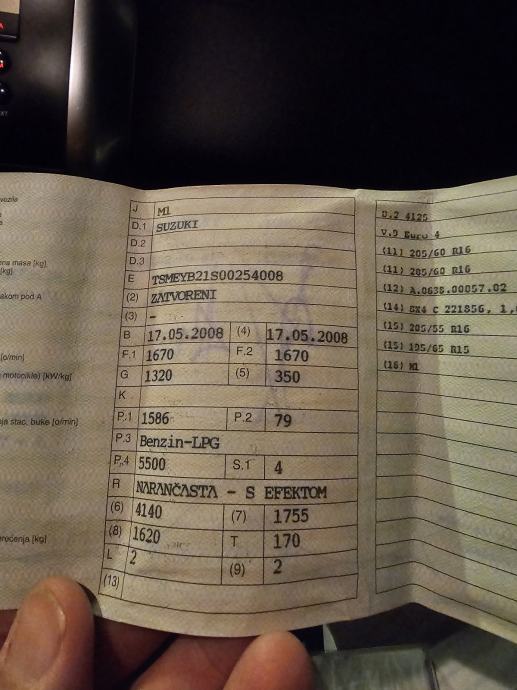 vozila
ena masa [kg]
[kg]
akom pod A
[o/min]
motocikle) [kW/kg]
ja stac. buke [o/min]
očenja [kg]
J M1
D.1 SUZUKI
D.2
D.3
E TSMEYB21S00254008
(2) ZATVORENI
(3) -
B 17.05.2008 (4) 17.05.2008
F.1 1670 F.2 1670
G 1320 (5) 350
K
P.1 1586 P.2 79
P.3 Benzin-LPG
P.4 5500 S.1 4
R NARANČASTA - S EFEKTOM
(6) 4140 (7) 1755
(8) 1620 T 170
L 2 (9) 2
(13)
D.2 4125
V.9 Euro 4
(11) 205/60 R16
(11) 205/60 R16
(12) A.0638.00057.02
(14) SX4 C 221856, 1,
(15) 205/55 R16
(15) 195/65 R15
(16) M1